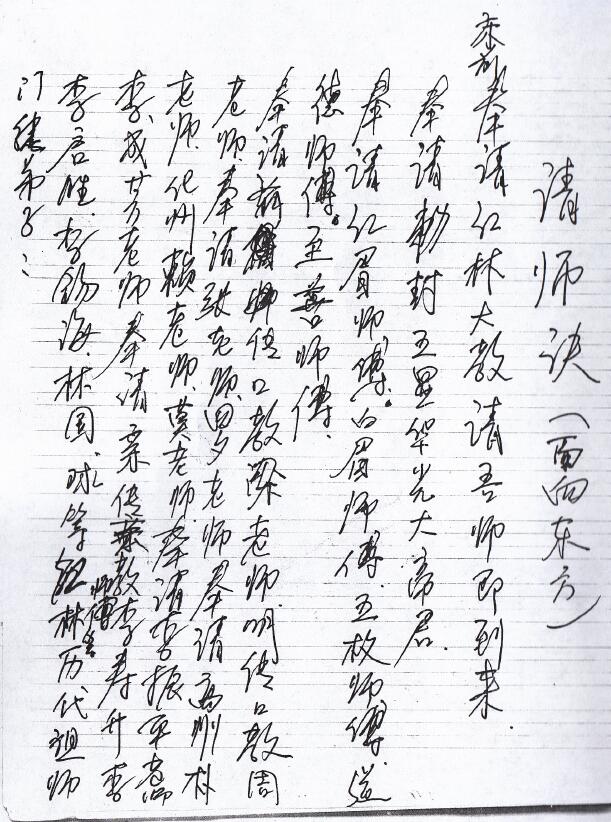 请师诀（面向东方）
奉请红林大教请吾师即到来.
奉请勅封五显华光大帝君.
奉请红眉师傅。白眉师傅.五枚师傅.道
德师傅。至善师傅.
奉请 师传口教 老师.明传口教周
老师.奉请 老师.罗老师奉请高州林
老师.化州赖老师.莫老师.奉请李振
李成芬老师奉请亲传 教李寿升李
李启胜.李锡海.林国球等红林历代祖师
师傅
门徒弟子：